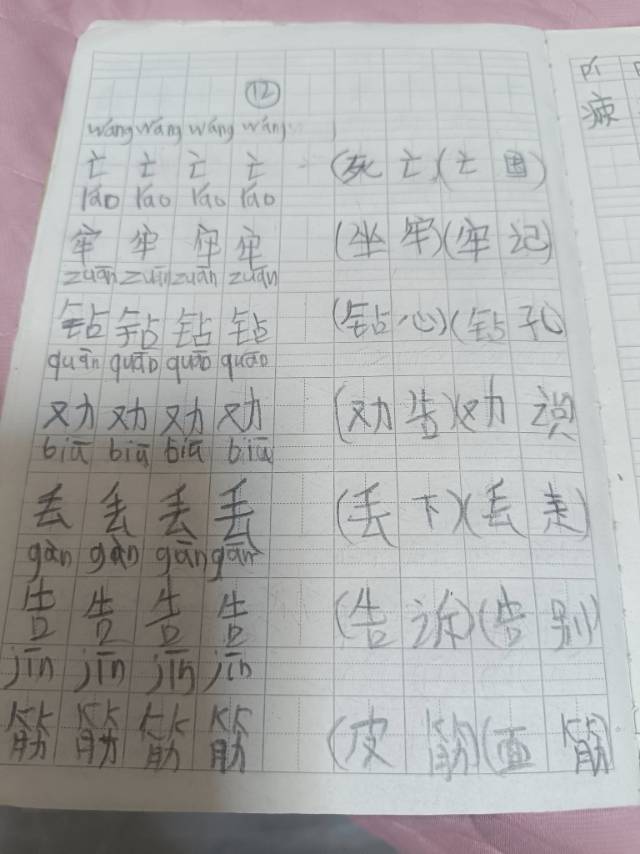 ⑫
wáng wáng wáng wáng
亡 亡 亡 亡 (死亡)(亡国)
láo láo láo láo
牢 牢 牢 牢 (坐牢)(牢记)
zuān zuān zuān zuān
钻 钻 钻 钻 (钻心)(钻孔
quān quāo quāo quāo
劝 劝 劝 劝 (劝告)劝说
biū biū biū biū
丢 丢 丢 丢 (丢下)(丢走)
gàn gàn gān gān
告 告 告 告 (告诉)(告别)
jīn jīn jīn jīn
筋 筋 筋 筋 (皮筋)(面筋)
pí
疲